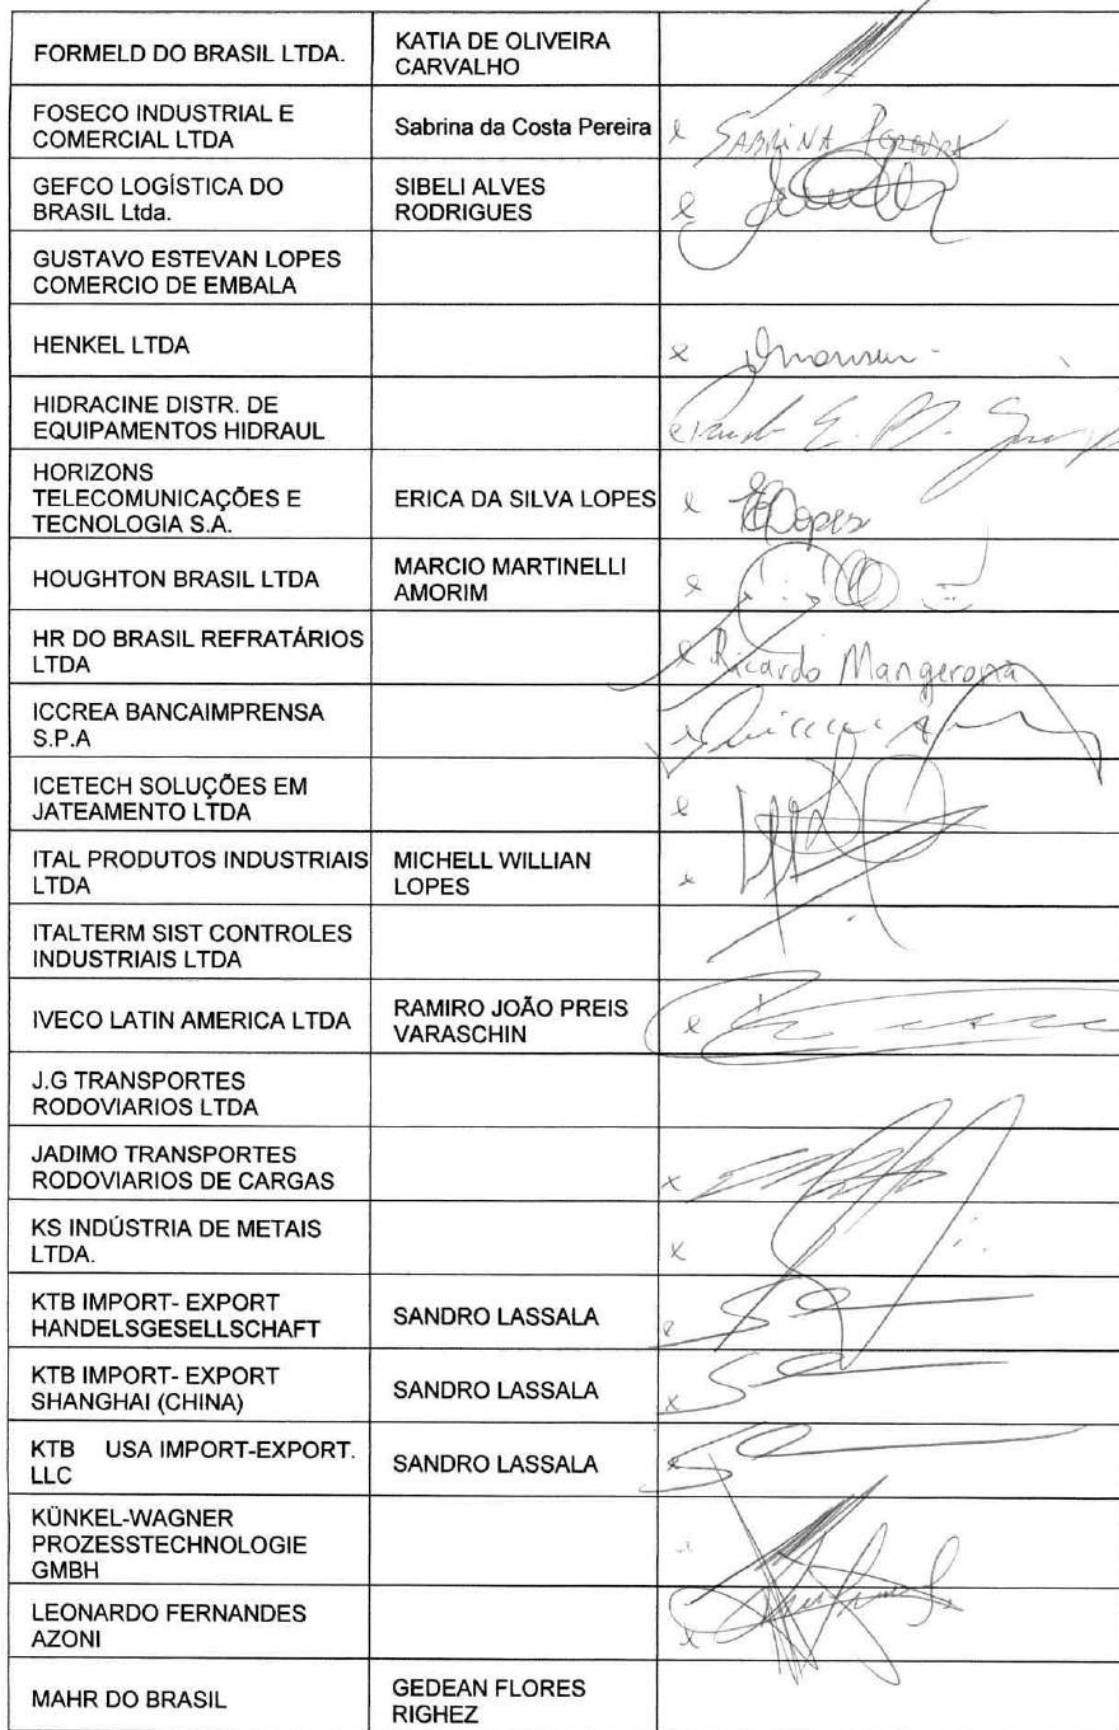 FORMELD DO BRASIL LTDA.
KATIA DE OLIVEIRA
CARVALHO
FOSECO INDUSTRIAL E
COMERCIAL LTDA
Sabrina da Costa Pereira
x SABRINA Pereira
GEFCO LOGÍSTICA DO
BRASIL Ltda.
SIBELI ALVES
RODRIGUES
x
GUSTAVO ESTEVAN LOPES
COMERCIO DE EMBALA
HENKEL LTDA
x
HIDRACINE DISTR. DE
EQUIPAMENTOS HIDRAUL
x
HORIZONS
TELECOMUNICAÇÕES E
TECNOLOGIA S.A.
ERICA DA SILVA LOPES
x Lopes
HOUGHTON BRASIL LTDA
MARCIO MARTINELLI
AMORIM
x
HR DO BRASIL REFRATÁRIOS
LTDA
x Ricardo Mangerona
ICCREA BANCAIMPRENSA
S.P.A
x
ICETECH SOLUÇÕES EM
JATEAMENTO LTDA
x
ITAL PRODUTOS INDUSTRIAIS
LTDA
MICHELL WILLIAN
LOPES
x
ITALTERM SIST CONTROLES
INDUSTRIAIS LTDA
IVECO LATIN AMERICA LTDA
RAMIRO JOÃO PREIS
VARASCHIN
x
J.G TRANSPORTES
RODOVIARIOS LTDA
JADIMO TRANSPORTES
RODOVIARIOS DE CARGAS
x
KS INDÚSTRIA DE METAIS
LTDA.
x
KTB IMPORT- EXPORT
HANDELSGESELLSCHAFT
SANDRO LASSALA
x
KTB IMPORT- EXPORT
SHANGHAI (CHINA)
SANDRO LASSALA
x
KTB USA IMPORT-EXPORT.
LLC
SANDRO LASSALA
x
KÜNKEL-WAGNER
PROZESSTECHNOLOGIE
GMBH
LEONARDO FERNANDES
AZONI
x
MAHR DO BRASIL
GEDEAN FLORES
RIGHEZ